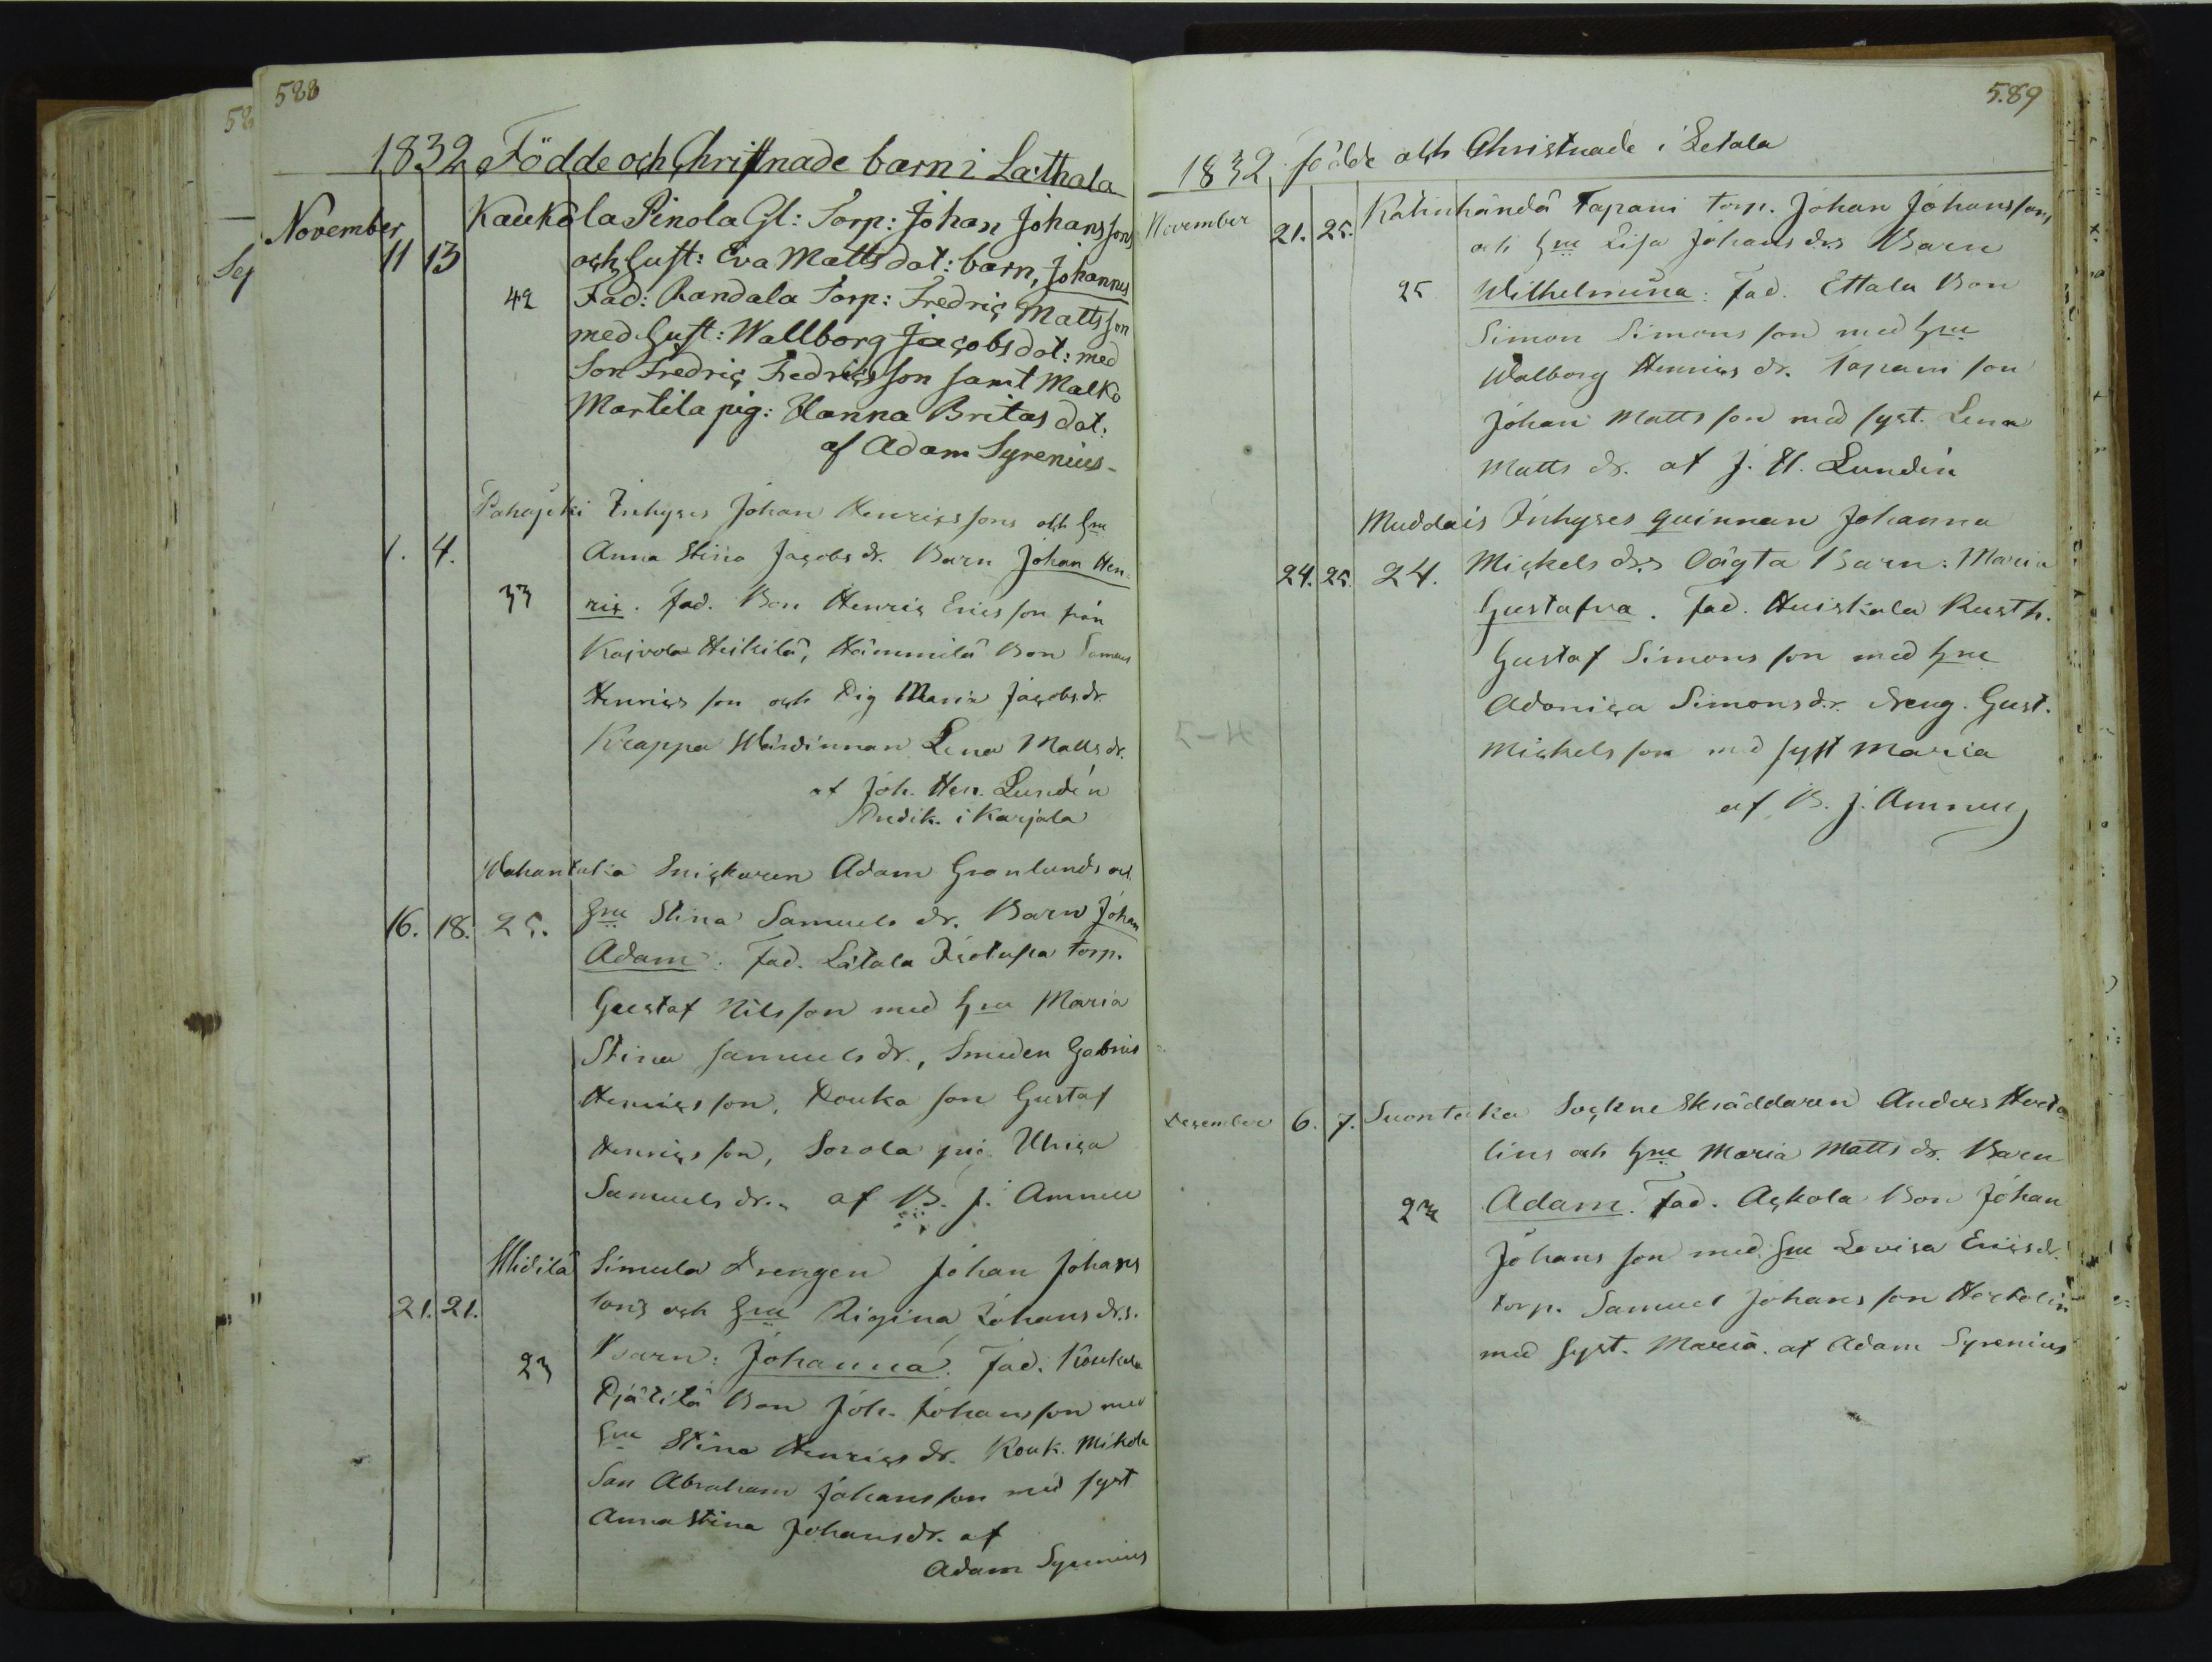 588
1832 Födde och Christnade barn i Laithala
November
Kaukola Pinola Gl: Torp: Johan Johanssons
11 13 och Hust: Eva Matts dot: barn, Johannes
42 Fad: Randala Torp: Fredric Matts son
med Hust: Wallborg Jacobs dot: med
Son Fredric Fredrics son samt Malko
Martila pig: Hanna Britas dot:
af Adam Syrenius
Pahojoki Inhyses Johan Henricssons och Hru
1. 4. Anna Stina Jacobs dr. Barn Johan Hen-
33 ric. Fad. Bon Henric Erics son från
Kajvola Heikilä, Hämmilä Bon
Henrics son och Pig Maria Jacobsdr.
Krappa Wärdinnan Lena Matts dr.
af Joh. Hen. Lundén
Predik. i Karjala
Wahantaka Snickaren Adam Gronlunds och
16. 18. 25. Hru Stina Samuels dr. Barn Johan
Adam. Fad. Látala Isotupa torp.
Gustaf Nilsson med Hru Maria
Stina Samuels dr., Smeden Gabriel
Henrics son, Kouka son Gustaf
Henrics son, Sorola pig. Ulrica
Samuels dr. af B. J. Amnell
Widilä Simula Drengen Johan Johans
21. 21. sons och Hru Rigina Johans drs.
23 Barn: Johanna. Fad. Koukola
Pjätilä Bon Joh. Johans son med
Hru Stina Henrics dr. Kouk. Mikola
Son Abraham Johans son med syst
Anna Stina Johansdr. af
Adam Syrenius
589
1832 Födde och Christnade i Letala
November 21. 25. Katinhändä Tapani torp. Johan Johanssons
och Hru Lisa Johans drs Barn
25 Wilhelmina: Fad. Ettala Bon
Simon Simons son med Hru
Walborg Henrics dr. Tapani son
Johan Matts son med syst. Lena
Matts dr. af J. H. Lundén
Muddais Inhyses quinnan Johanna
24. 25. 24. Mickels drs Oägta Barn: Maria
Gustafva. Fad. Huiskala Rusth.
Gustaf Simons son med Hru
Adonica Simonsdr. dreng. Gust.
Mickels son med syst Maria
af B. J. Amnell
Desember 6. 7. Suontaka Sockne Skräddaren Anders Herto
lins och Hru Maria Matts dr. Barn
23 Adam. Fad. Ackola Bon Johan
Johans son med Hru Lovisa Ericsdr.
torp. Samuel Johans son Hertolin
med Syst. Maria. af Adam Syrenius